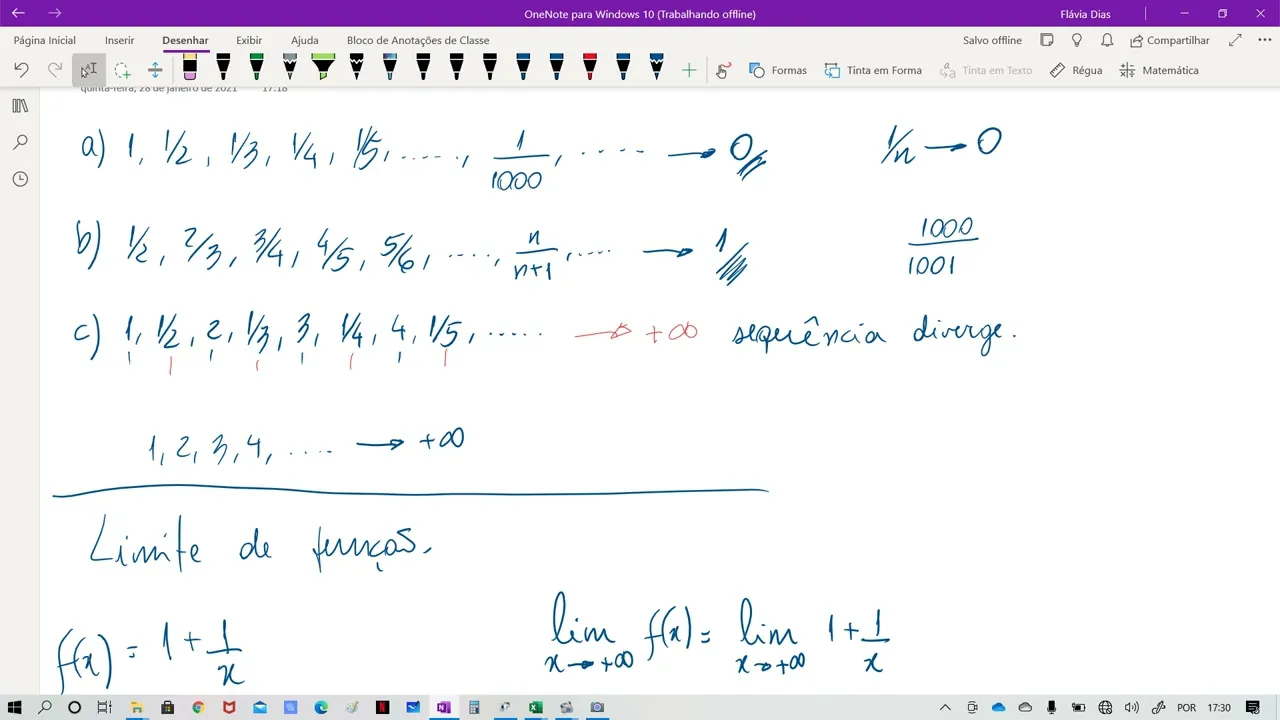 OneNote para Windows 10 (Trabalhando offline)
Flávia Dias
Página Inicial Inserir Desenhar Exibir Ajuda Bloco de Anotações de Classe
Salvo offline Compartilhar
Formas Tinta em Forma Tinta em Texto Régua Matemática
quinta-feira, 28 de janeiro de 2021 17:18
a) 1, 1/2, 1/3, 1/4, 1/5, ......, 1/1000, ...... → 0 1/n → 0
b) 1/2, 2/3, 3/4, 4/5, 5/6, ....., n/n+1, ..... → 1 1000/1001
c) 1, 1/2, 2, 1/3, 3, 1/4, 4, 1/5, ...... → +∞ sequência diverge.
1, 2, 3, 4, ..... → +∞
Limite de função.
f(x) = 1 + 1/x lim x→+∞ f(x) = lim x→+∞ 1 + 1/x
POR 17:30